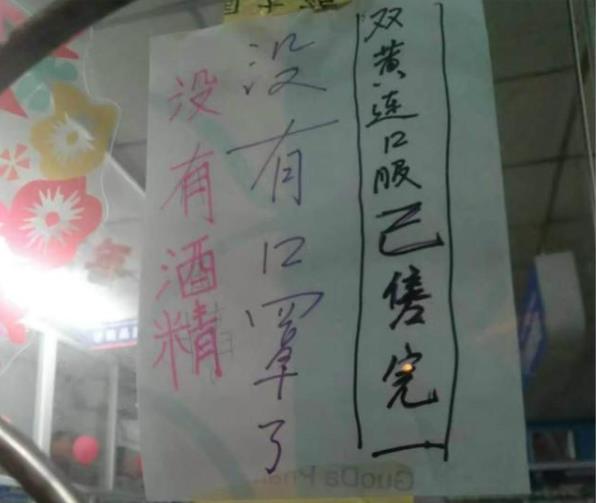 双黄连口服已售完
没有口罩了
没有酒精